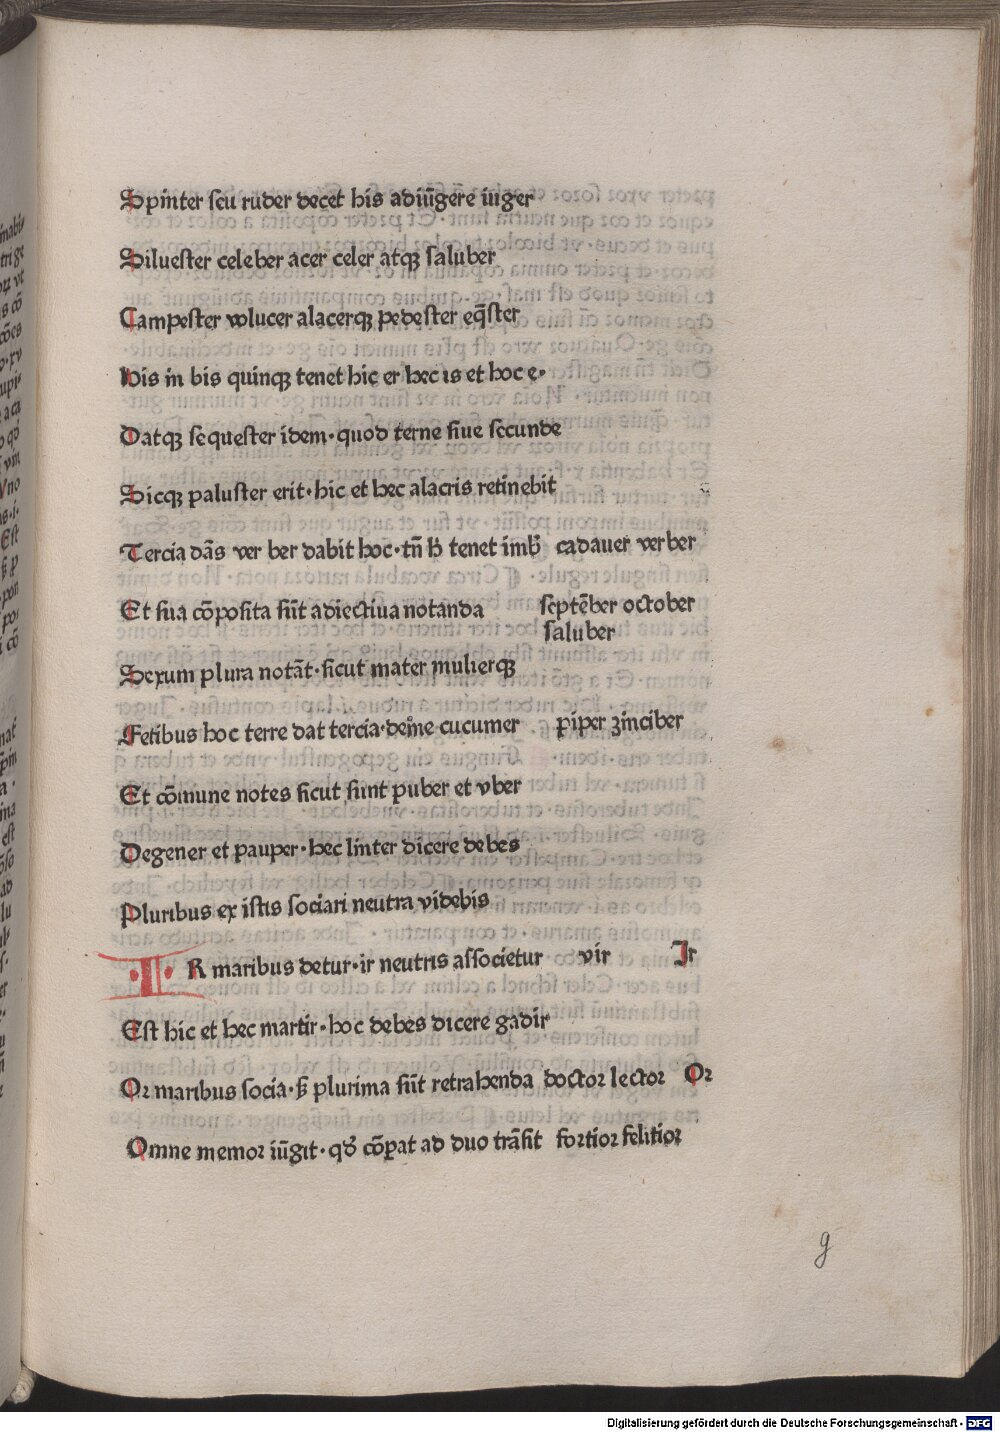 Spinter seu ruder decet his adiūgere iūger
Siluester celeber acer celer atqꝫ saluber
Campester volucer alacerqꝫ pedester eq̄ster
His in bis quinqꝫ tenet hic er hec is et hoc e·
Datqꝫ sequester idem·quod terne siue secunde
Sicqꝫ paluster erit·hic et hec alacris retinebit
Tercia dās ver ber dabit hoc·tn̄ tenet imb̄ cadauer verber
Et sua cōposita sūt adiectiua notanda septēber october
saluber
Sexum plura notāt·sicut mater mulierqꝫ
Fetibus hoc terre dat tercia·deine cucumer piper zinciber
Et cōmune notes sicut sunt puber et vber
Degener et pauper·hec linter dicere debes
Pluribus ex istis sociari neutra videbis
·I· R maribus detur·ir neutris associetur vir Ir
Est hic et hec martir·hoc debes dicere gadir
Or maribus socia·sꝫ plurima sūt retrahenda doctor lector Or
Omne memor iūgit·qd̓ cōpat ad duo trāsit fortior felitior
g
Digitalisierung gefördert durch die Deutsche Forschungsgemeinschaft - DFG